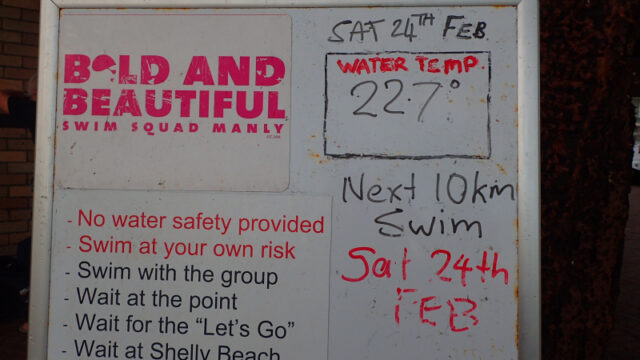 BOLD AND
BEAUTIFUL
SWIM SQUAD MANLY
- No water safety provided
- Swim at your own risk
- Swim with the group
- Wait at the point
- Wait for the “Let's Go”
- Wait at Shelly Beach
SAT 24TH FEB
WATER TEMP.
22.7°
Next 10km
Swim
Sat 24th
FEB